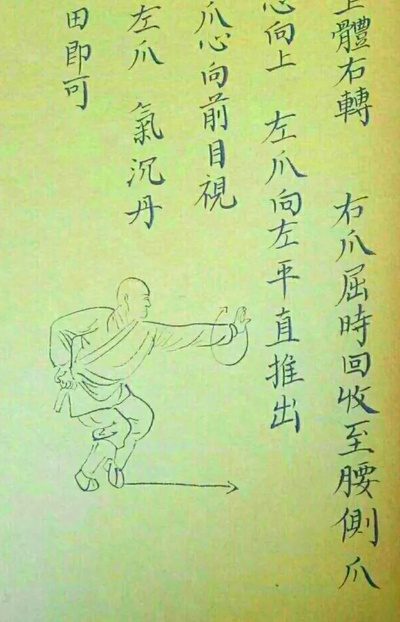 體右轉 右爪屈時回收至腰側爪
心向上 左爪向左平直推出
爪心向前目視
左爪 氣沉丹
田即可